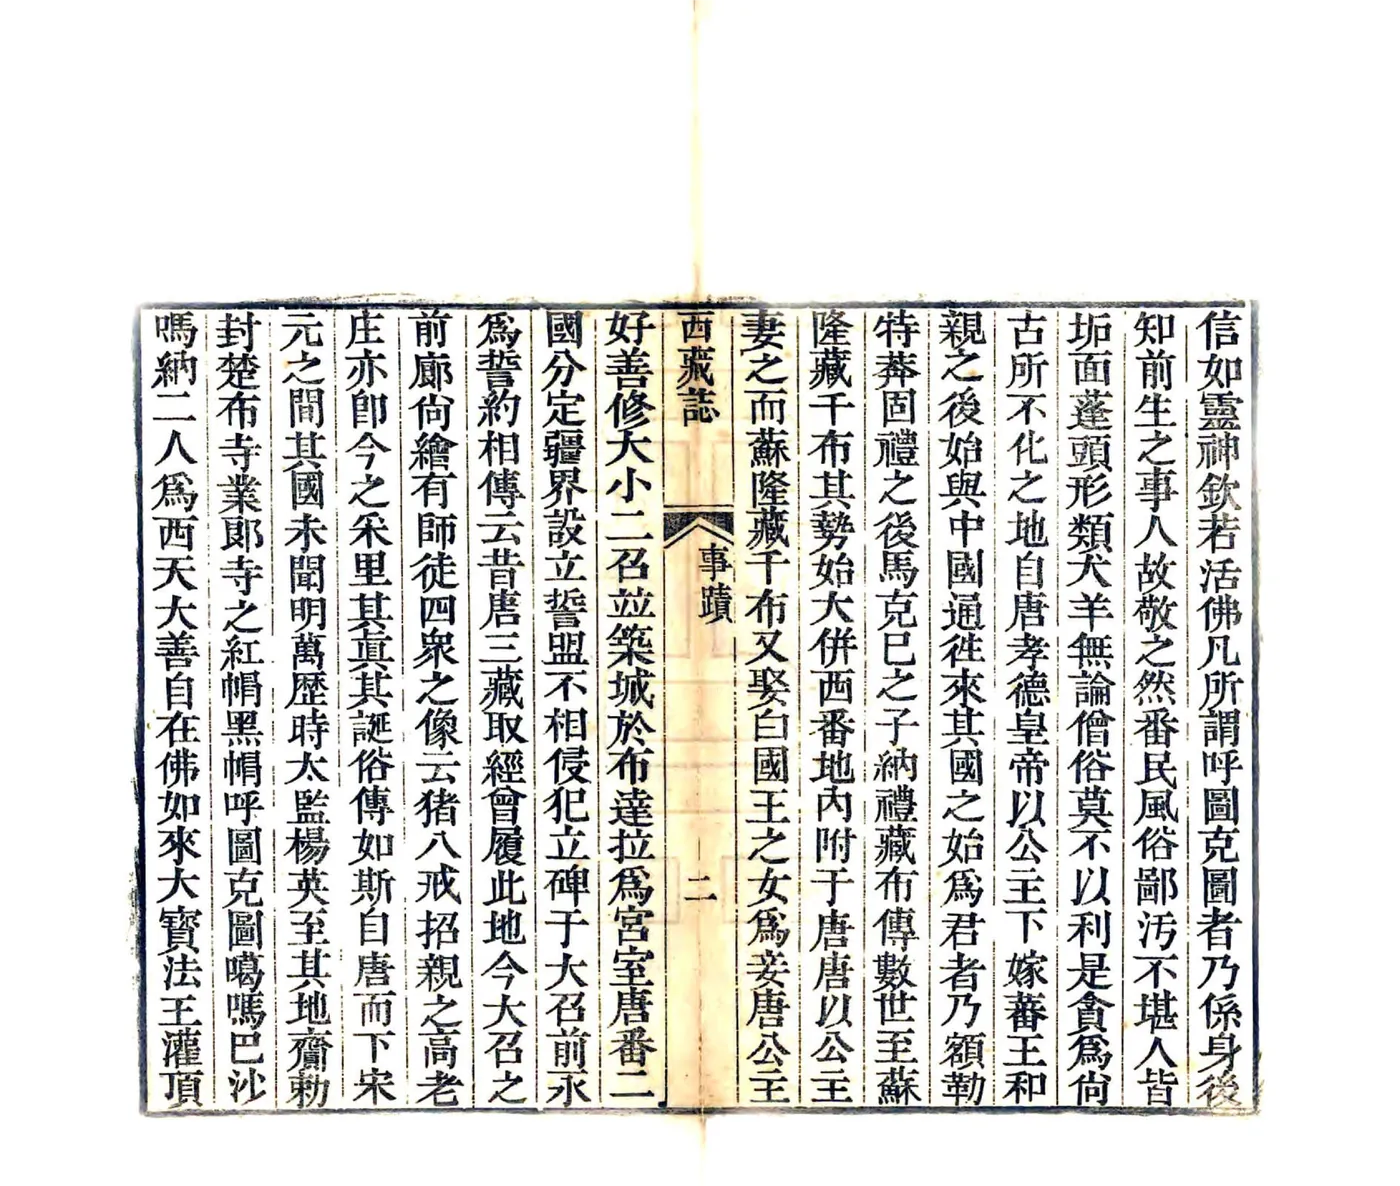 信如靈神欽若活佛凡所謂呼圖克圖者乃係身後
知前生之事人故敬之然番民風俗鄙汚不堪人皆
垢面蓬頭形類犬羊無論僧俗莫不以利是貪爲尙
古所不化之地自唐孝德皇帝以公主下嫁蕃王和
親之後始與中國通徃來其國之始爲君者乃額勒
特莽固禮之後馬克巳之子納禮藏布傳數世至蘇
隆藏千布其勢始大併西番地內附于唐唐以公主
妻之而蘇隆藏千布又娶白國王之女爲妾唐公主
西藏誌
事蹟
二
好善修大小二召並築城於布達拉爲宮室唐番二
國分定疆界設立誓盟不相侵犯立碑于大召前永
爲誓約相傳云昔唐三藏取經曾履此地今大召之
前廊尙繪有師徒四衆之像云猪八戒招親之高老
庄亦卽今之采里其眞其誕俗傳如斯自唐而下宋
元之間其國未聞明萬歷時太監楊英至其地齎勅
封楚布寺業郞寺之紅帽黑帽呼圖克圖噶嗎巴沙
嗎納二人爲西天大善自在佛如來大寶法王灌頂